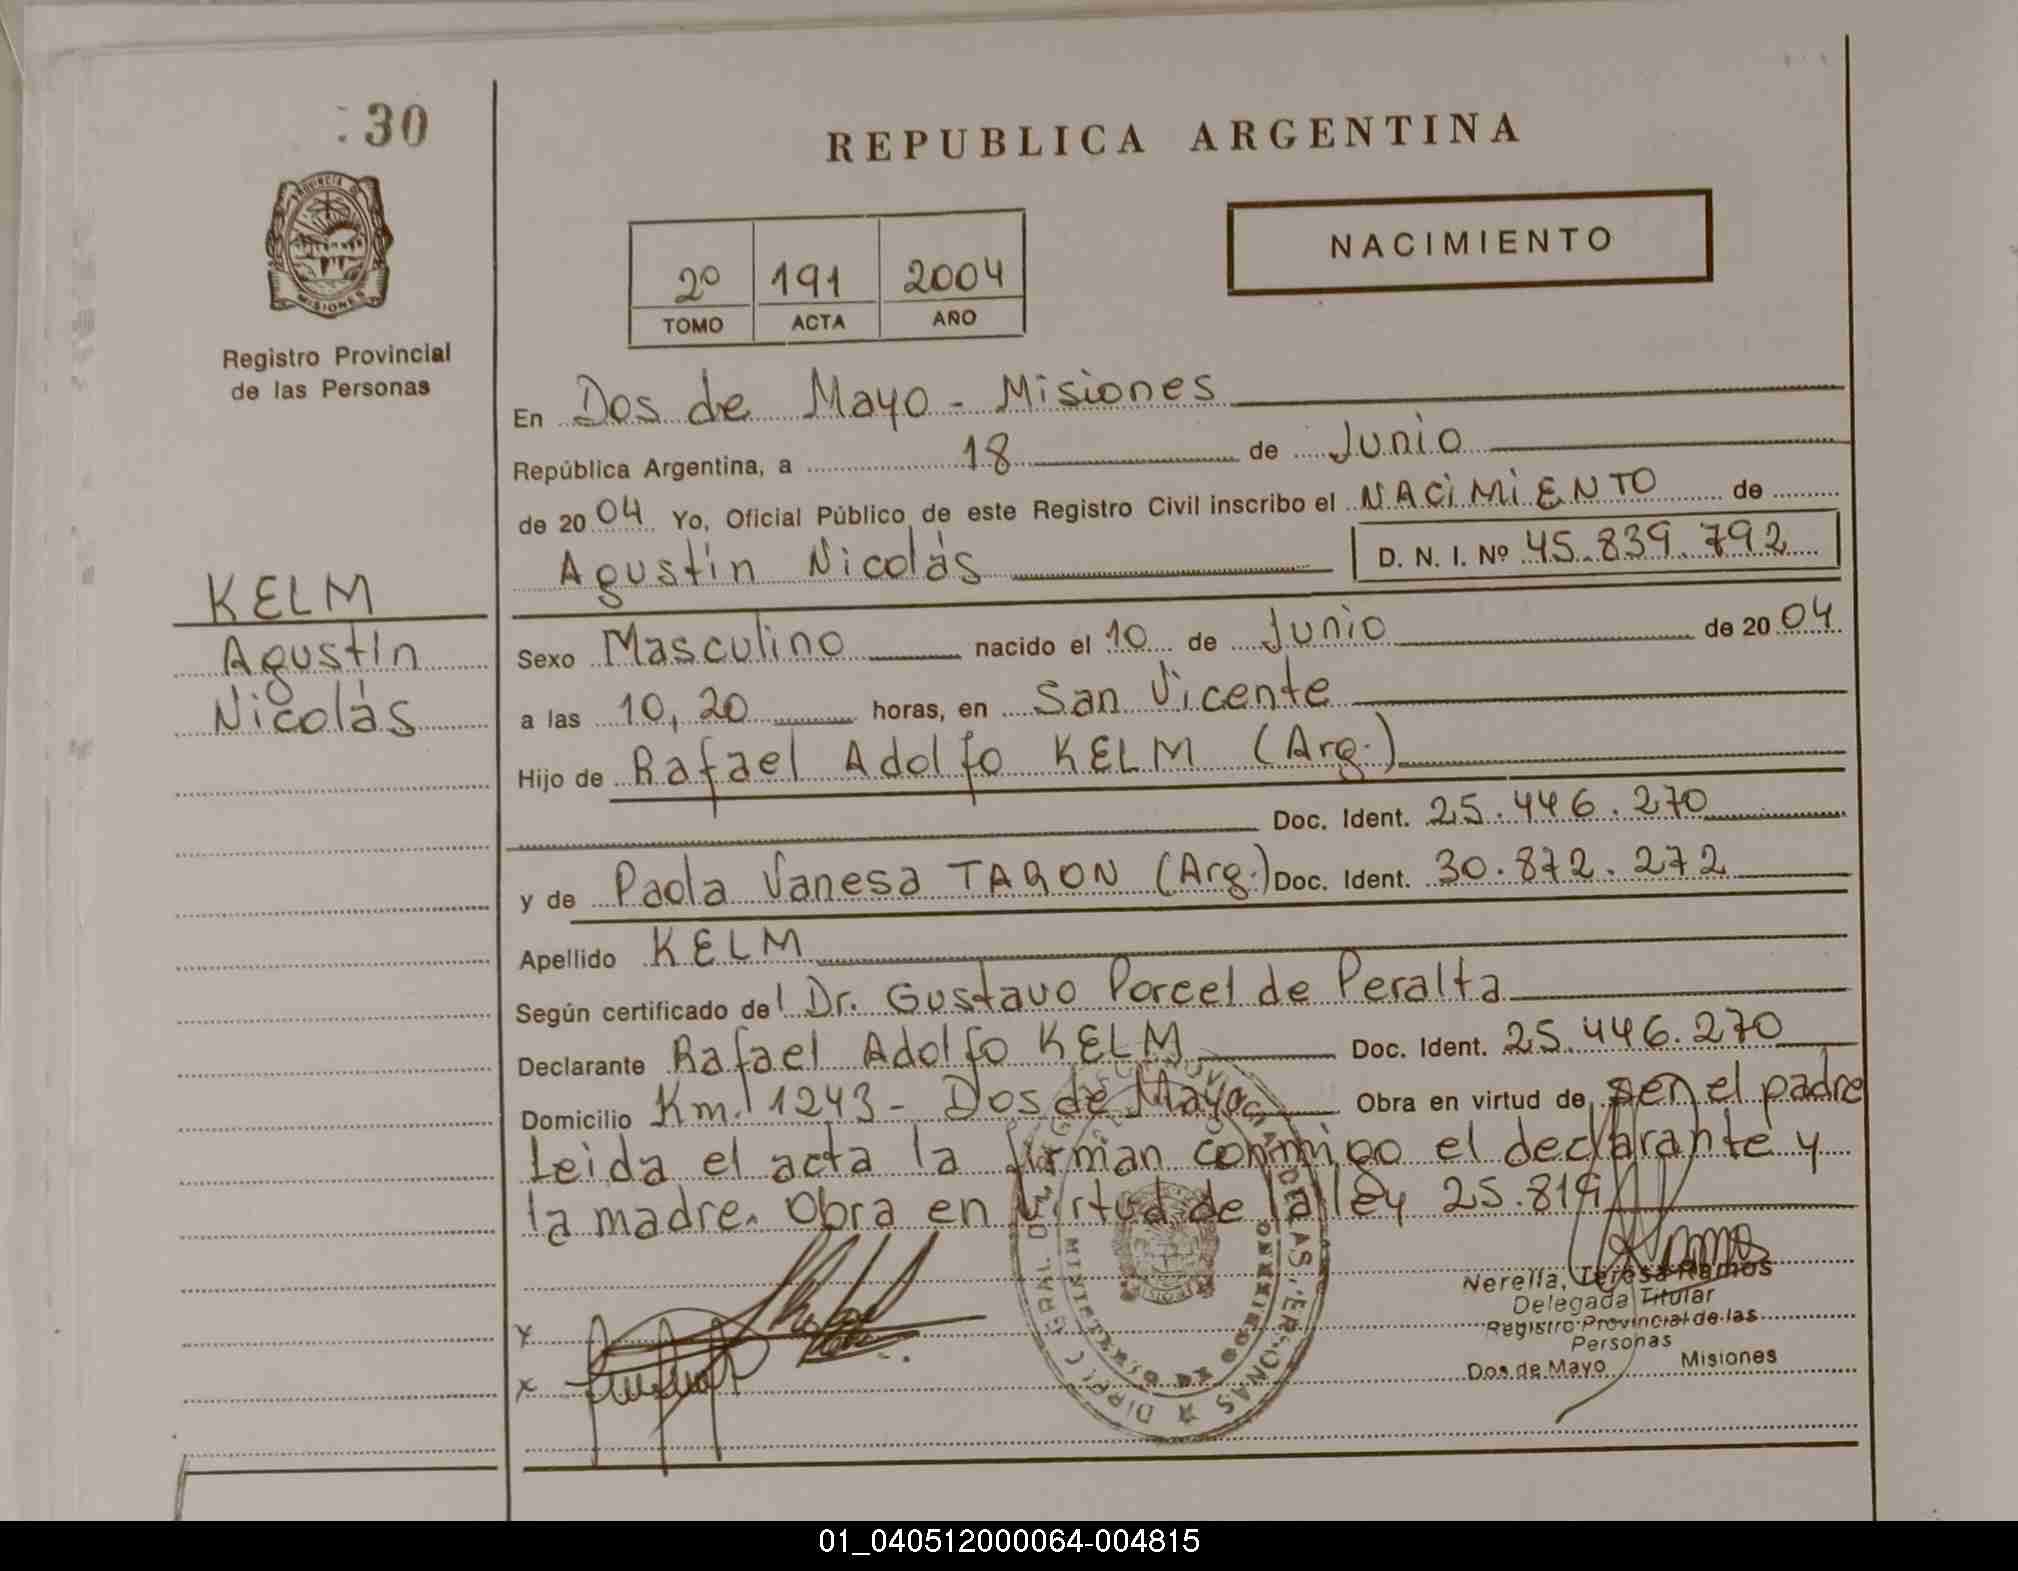 30
REPUBLICA ARGENTINA
PROVINCIA DE
MISIONES
Registro Provincial
de las Personas
NACIMIENTO
2º 191 2004
TOMO ACTA AÑO
En Dos de Mayo - Misiones
República Argentina, a 18 de Junio
de 2004 Yo, Oficial Público de este Registro Civil inscribo el NACIMIENTO de
Agustín Nicolás D. N. I. Nº 45.839.792
KELM
Agustín
Nicolás
Sexo Masculino nacido el 10 de Junio de 2004
a las 10,20 horas, en San Vicente
Hijo de Rafael Adolfo KELM (Arg.)
Doc. Ident. 25.446.270
y de Paola Vanesa TARON (Arg.) Doc. Ident. 30.872.272
Apellido KELM
Según certificado del Dr. Gustavo Porcel de Peralta
Declarante Rafael Adolfo KELM Doc. Ident. 25.446.270
Domicilio Km. 1243 - Dos de Mayo Obra en virtud de ser el padre
Leida el acta la firman conmigo el declarante y
la madre. Obra en virtud de la ley 25.819
Nerella, Teresa Ramos
Delegada Titular
Registro Provincial de las
Personas
Dos de Mayo Misiones
x
x
01_040512000064-004815